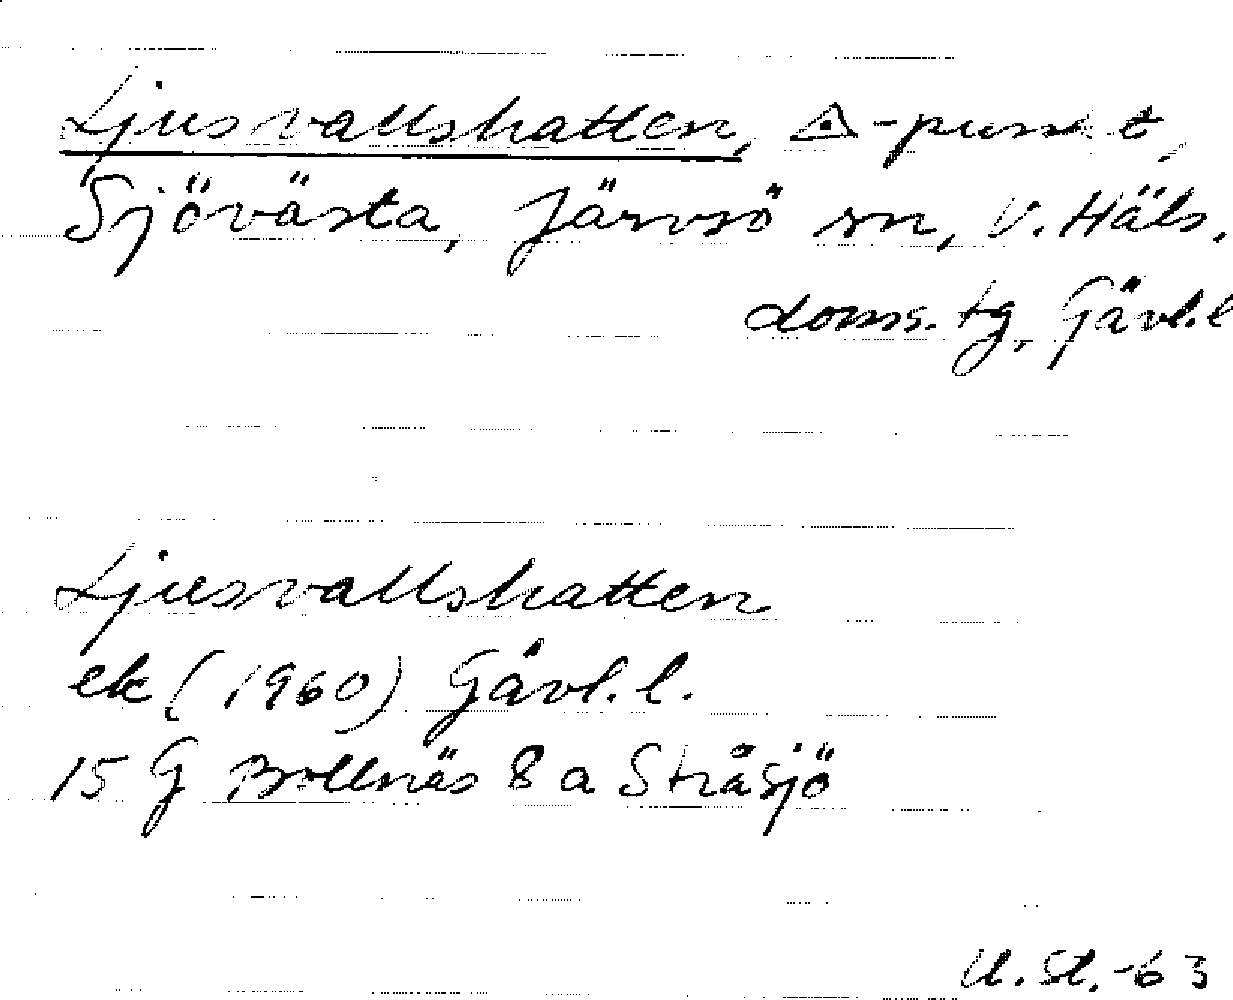 Ljusvallshatten, △-punkt,
Sjövästa, Järvsö sn, V. Häls.
doms.tg, Gävl.l
Ljusvallshatten
ek (1960) Gävl.l.
15 G Bollnäs 8 a Stråsjö
U.St.-63